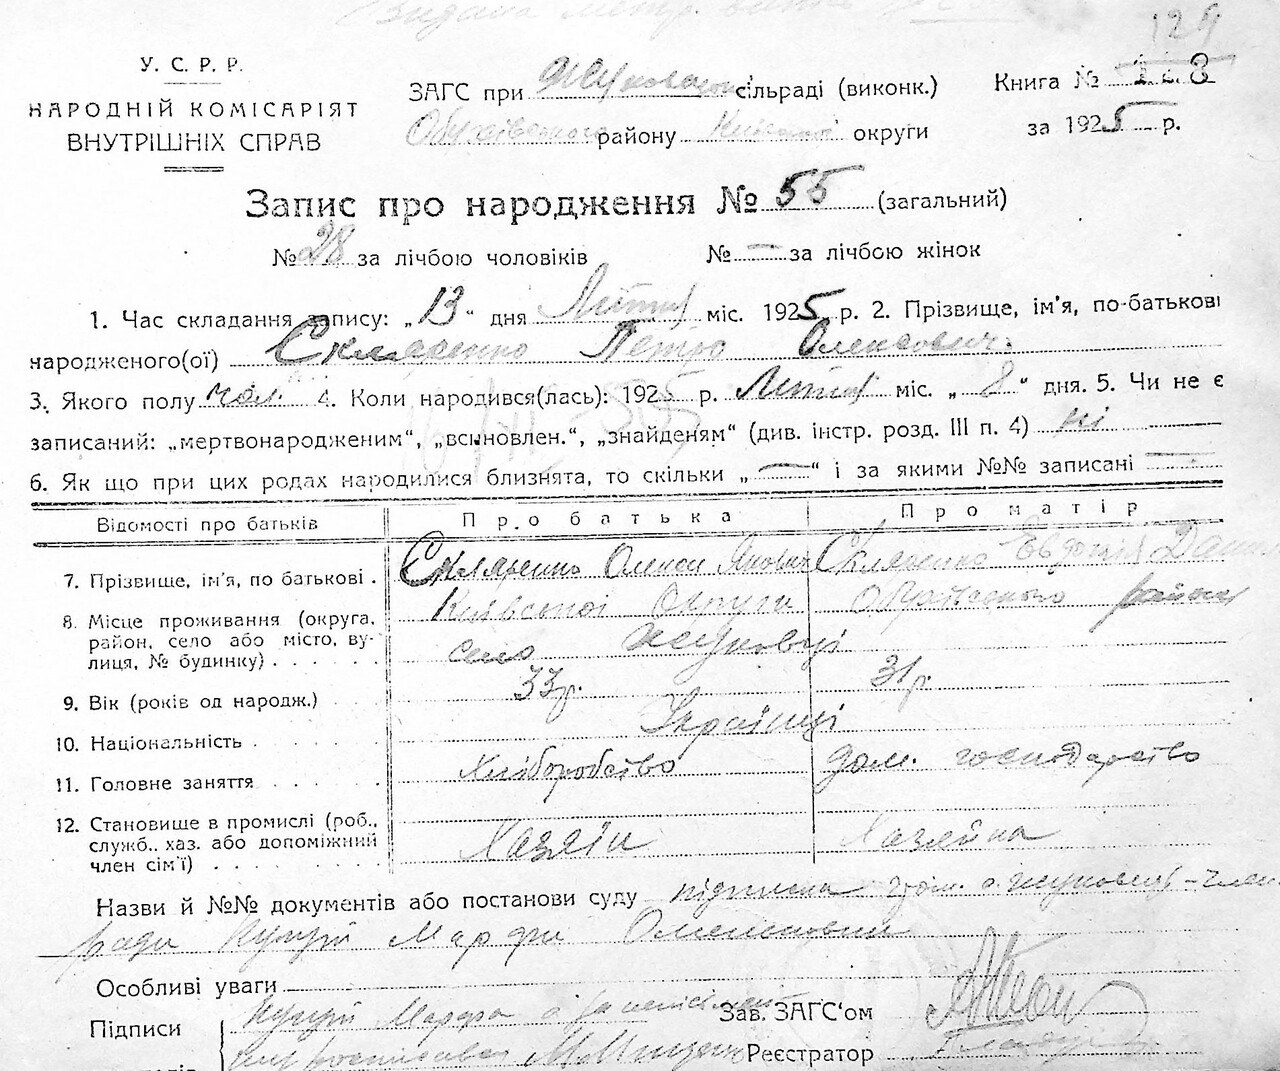 У. С. Р. Р.
НАРОДНІЙ КОМІСАРІЯТ
ВНУТРІШНІХ СПРАВ
ЗАГС при сільраді (виконк.)
Обухівського району Київської округи
Книга №
за 1925 р.
Запис про народження № 55 (загальний)
№ 28 за лічбою чоловіків № — за лічбою жінок
1. Час складання запису: „13“ дня Лютня міс. 1925 р. 2. Прізвище, ім'я, по-батькові
народженого(ої) Скляренко Петро Олексович.
3. Якого полу чол. 4. Коли народився(лась): 1925 р. Лютня міс. „8“ дня. 5. Чи не є
записаний: „мертвонародженим“, „всиновлен.“, „знайденям“ (див. інстр. розд. III п. 4) ні
6. Як що при цих родах народилися близнята, то скільки „—“ і за якими №№ записані —
Відомості про батьків Про батька Про матір
7. Прізвище, ім'я, по батькові . Скляренко Олекса Якович Скляренко Евдокія
8. Місце проживання (округа, район, село або місто, вулиця, № будинку) . . . . . . Київської Округи Обухівського району
село Жуковці
9. Вік (років од народж.) 33 р. 31 р.
10. Національність . . . . . Українці
11. Головне заняття . . . . . Хліборобство дом. господарство
12. Становище в промислі (роб., служб., хаз. або допоміжний член сім'ї) . . . . . . Хазяїн Хазяйка
Назви й №№ документів або постанови суду підписка гром. с. Жуковець – член.
ради Марфи
Особливі уваги
Підписи Марфа
Зав. ЗАГС'ом
Реєстратор